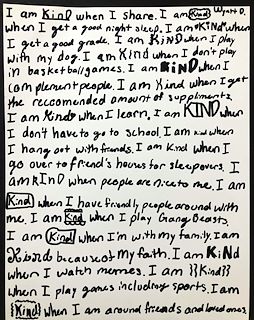 I am KinD when I share. I am Kind Wyatt D.
when I get a good night sleep. I am *KIND* when
I get a good grade. I am KiND when I play
with my dog. I am Kind when I don't play
in basketball games. I am KIND when I
complement people. I am Kind when I get
the reccomended amount of suppliments.
I am Kind when I learn. I am KIND when
I don't have to go to school. I am Kind when
I hang out with friends. I am Kind when I
go over to friend's houses for sleepovers. I
am KInD when people are nice to me. I am
Kind when I have friendly people around with
me. I am Kind when I play Gang Beasts.
I am Kind when I'm with my family. I am
Kind because of my faith. I am KiNd
when I watch memes. I am }{Kind}}
when I play games including sports. I am
{Kind} when I am around friends and loved ones.